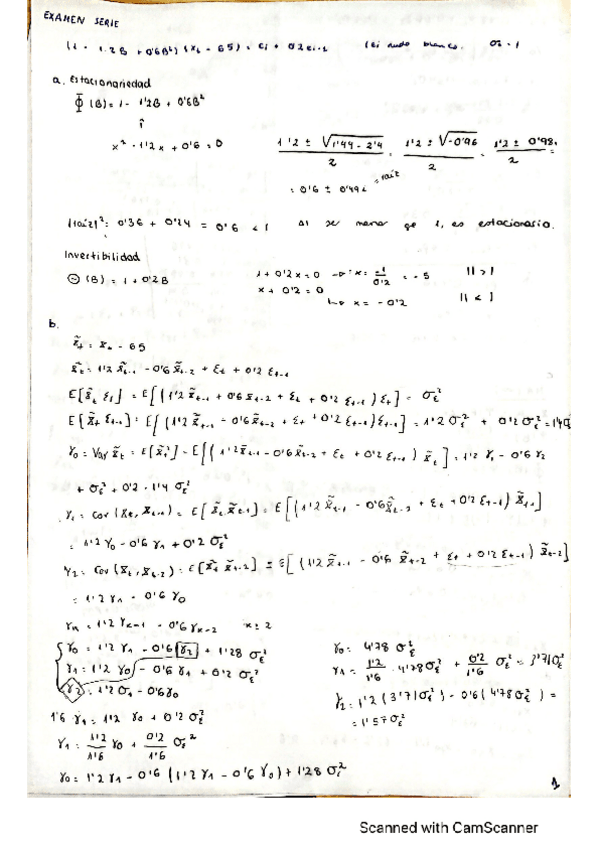 EXAMEN SERIE
(1 - 1'2B + 0'6B²)(Xt - 65) = εt + 0'2εt-1 (εt ruido blanco. σε = 1
a. Estacionariedad
Φ(B) = 1 - 1'2B + 0'6B²
x² - 1'2x + 0'6 = 0
1'2 ± √1'44 - 2'4 / 2 = 1'2 ± √-0'96 / 2 = 1'2 ± 0'98i / 2 =
= 0'6 ± 0'49i = raíz
|raíz|²: 0'36 + 0'24 = 0'6 < 1 Al ser menor qe 1, es estacionario.
Invertibilidad
Θ(B) = 1 + 0'2B
1 + 0'2x = 0 → x = -1/0'2 = -5 || > 1
x + 0'2 = 0 ↳ x = -0'2 || < 1
b.
x̃t = xt - 65
x̃t = 1'2 x̃t-1 - 0'6 x̃t-2 + εt + 0'2 εt-1
E[x̃t εt] = E[(1'2 x̃t-1 + 0'6 x̃t-2 + εt + 0'2 εt-1) εt] = σε²
E[x̃t εt-1] = E[(1'2 x̃t-1 - 0'6 x̃t-2 + εt + 0'2 εt-1) εt-1] = 1'2 σε² + 0'2 σε² = 1'4σ
γ0 = Var x̃t = E[x̃t²] = E[(1'2 x̃t-1 - 0'6 x̃t-2 + εt + 0'2 εt-1) x̃t] = 1'2 γ1 - 0'6 γ2
+ σε² + 0'2 · 1'4 σε²
γ1 = Cov(xt, xt-1) = E[x̃t x̃t-1] = E[(1'2 x̃t-1 - 0'6 x̃t-2 + εt + 0'2 εt-1) x̃t-1]
= 1'2 γ0 - 0'6 γ1 + 0'2 σε²
γ2 = Cov(x̃t, x̃t-2) = E[x̃t x̃t-2] = E[(1'2 x̃t-1 - 0'6 x̃t-2 + εt + 0'2 εt-1) x̃t-2]
= 1'2 γ1 - 0'6 γ0
γk = 1'2 γk-1 - 0'6 γk-2 k ≥ 2
γ0 = 1'2 γ1 - 0'6 γ2 + 1'28 σε²
γ1 = 1'2 γ0 - 0'6 γ1 + 0'2 σε²
γ2 = 1'2 γ1 - 0'6 γ0
1'6 γ1 = 1'2 γ0 + 0'2 σε²
γ1 = 1'2/1'6 γ0 + 0'2/1'6 σε²
γ0 = 1'2 γ1 - 0'6 (1'2 γ1 - 0'6 γ0) + 1'28 σε²
γ0 = 4'78 σε²
γ1 = 1'2/1'6 · 4'78 σε² + 0'2/1'6 σε² = 3'71 σε²
γ2 = 1'2 (3'71 σε²) - 0'6 (4'78 σε²) =
= 1'57 σε²
1
Scanned with CamScanner